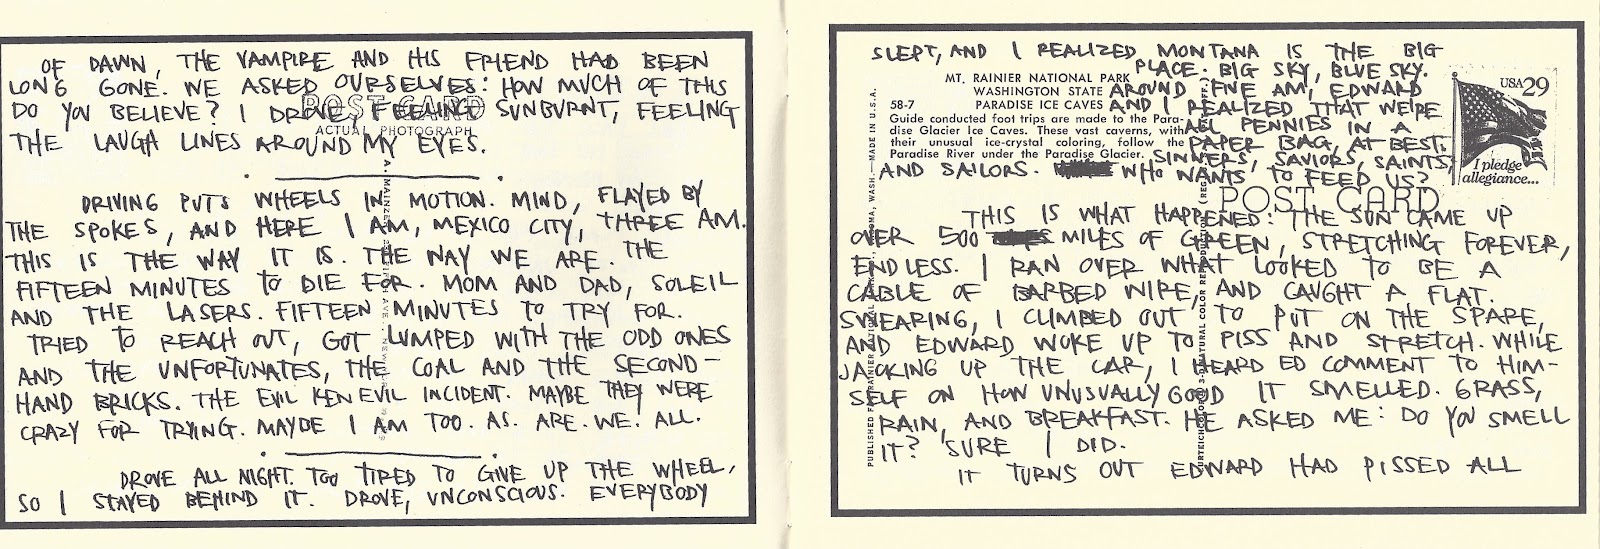 OF DAWN, THE VAMPIRE AND HIS FRIEND HAD BEEN
LONG GONE. WE ASKED OURSELVES: HOW MUCH OF THIS
DO YOU BELIEVE? I DROVE, FEELING SUNBURNT, FEELING
POST CARD
ACTUAL PHOTOGRAPH
THE LAUGH LINES AROUND MY EYES.
DRIVING PUTS WHEELS IN MOTION. MIND, FLAYED BY
THE SPOKES, AND HERE I AM, MEXICO CITY, THREE AM.
THIS IS THE WAY IT IS. THE WAY WE ARE. THE
FIFTEEN MINUTES TO DIE FOR. MOM AND DAD, SOLEIL
AND THE LASERS. FIFTEEN MINUTES TO TRY FOR.
TRIED TO REACH OUT, GOT LUMPED WITH THE ODD ONES
AND THE UNFORTUNATES, THE COAL AND THE SECOND-
HAND BRICKS. THE EVIL KENEVIL INCIDENT. MAYBE THEY WERE
CRAZY FOR TRYING. MAYBE I AM TOO. AS. ARE. WE. ALL.
DROVE ALL NIGHT. TOO TIRED TO GIVE UP THE WHEEL,
SO I STAYED BEHIND IT. DROVE, UNCONSCIOUS. EVERYBODY
SLEPT, AND I REALIZED MONTANA IS THE BIG
PLACE. BIG SKY, BLUE SKY.
AROUND FIVE AM, EDWARD
AND I REALIZED THAT WE'RE
ALL PENNIES IN A
PAPER BAG, AT BEST.
SINNERS, SAVIORS, SAINTS,
AND SAILORS. WHO WANTS TO FEED US?
MT. RAINIER NATIONAL PARK
WASHINGTON STATE
58-7 PARADISE ICE CAVES
Guide conducted foot trips are made to the Para-
dise Glacier Ice Caves. These vast caverns, with
their unusual ice-crystal coloring, follow the
Paradise River under the Paradise Glacier.
USA 29
I pledge
allegiance...
POST CARD
THIS IS WHAT HAPPENED: THE SUN CAME UP
OVER 500 MILES OF GREEN, STRETCHING FOREVER,
ENDLESS. I RAN OVER WHAT LOOKED TO BE A
CABLE OF BARBED WIRE, AND CAUGHT A FLAT.
SWEARING, I CLIMBED OUT TO PUT ON THE SPARE,
AND EDWARD WOKE UP TO PISS AND STRETCH. WHILE
JACKING UP THE CAR, I HEARD ED COMMENT TO HIM-
SELF ON HOW UNUSUALLY GOOD IT SMELLED. GRASS,
RAIN, AND BREAKFAST. HE ASKED ME: DO YOU SMELL
IT? SURE I DID.
IT TURNS OUT EDWARD HAD PISSED ALL